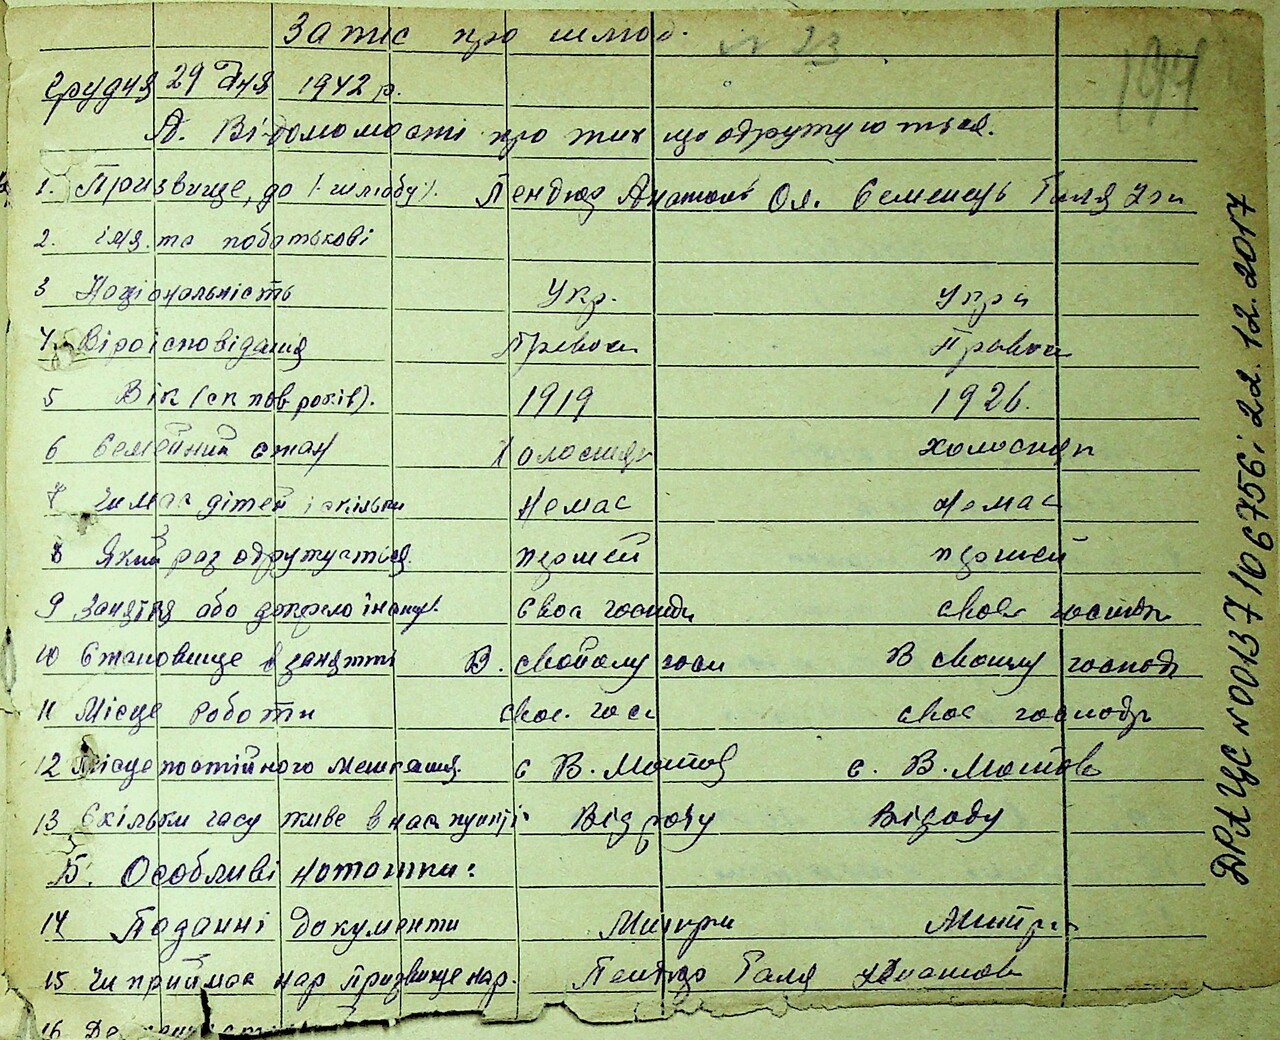 Запис про шлюб.
№ 23
194
Грудня 29 дня 1942 р.
А. Відомомості про тих що одружуються.
1. Призвище, до (шлюбу). Пендюр Анатоль Ол. Семенець Галя
2. імя. та побатькові
3 Національність Укр. Укра
4. Віроісповідання Правос Правос
5 Вік (ск пов років). 1919 1926.
6 Семейний стан Холостяк холостяк
7 Чи має дітей і скільки Немає Немає
8 Який раз одружується першей першей
9 Заняття або джерело існув. своє господ своє господ
10 Становище в занятті В. свойому госп В своєму господ
11 Місце роботи своє. гос своє господр
12 Місце постійного мешкання. с В. Мостов с. В. Мостов
13 Скільки часу живе в нас пункті Відроду Відроду
Б. Особливі нотатки:
14 Поданні документи Митри Митри
15 Чи приймає нар призвище нар. Галя
16 Де
ДРАЦС №00137106756 і 22.12.2017